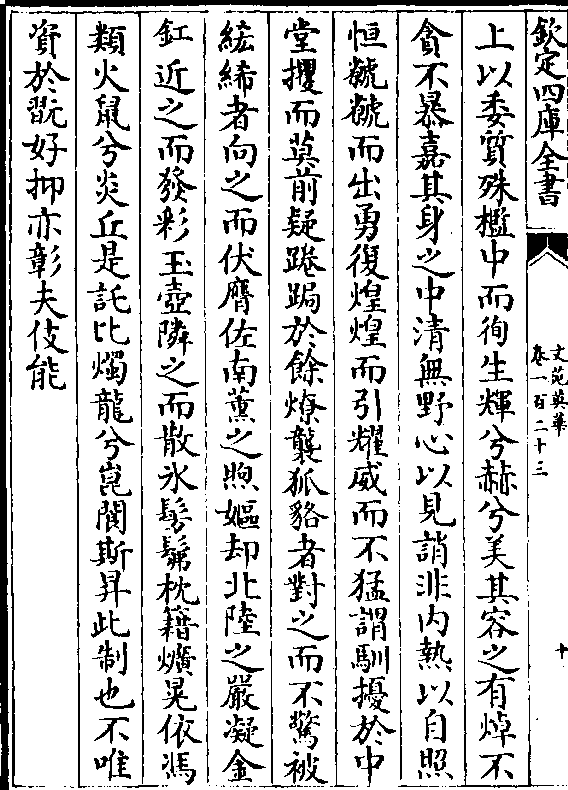 欽定四庫全書
文苑英華
卷一百二十三
十
上以委質殊檻中而徇生輝兮赫兮美其容之有焯不
貪不暴嘉其身之中清無野心以見誚非内熱以自照
恒虩虩而出勇復煌煌而引耀威而不猛謂馴擾於中
堂攫而莫前疑踡跼於餘燎襲狐貉者對之而不驚被
絺綌者向之而伏膺佐南薰之煦嫗却北陸之嚴凝金
釭近之而發彩玉壺隣之而散氷髣髴枕籍爌晃依馮
類火鼠兮炎丘是託比燭龍兮崑閬斯昇此制也不唯
資於翫好抑亦彰夫伎能